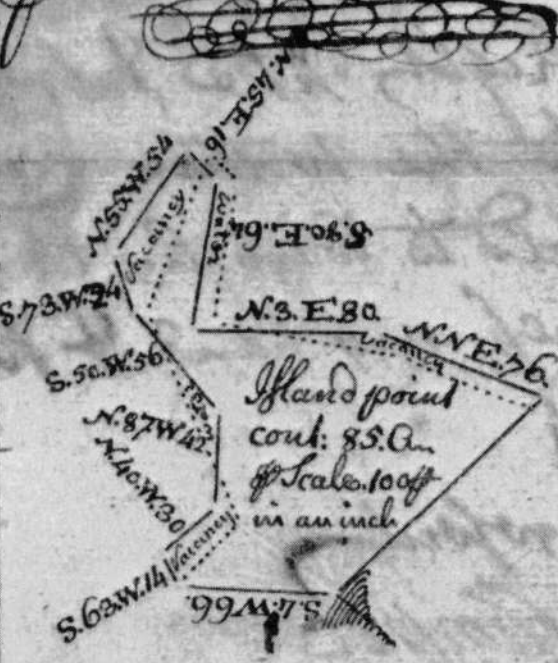 N.45.E.16
N.50.W.54
Vacancy
Water
S.80.E.64
S.73.W.24
N.3.E.80
NNE.76.
Vacancy
S.50.W.56
N.87W42
N.40.W.30
Vacancy
S.63.W.14
S.4.W66
Island point
cont: 85.A
p Scale.100p
in an inch